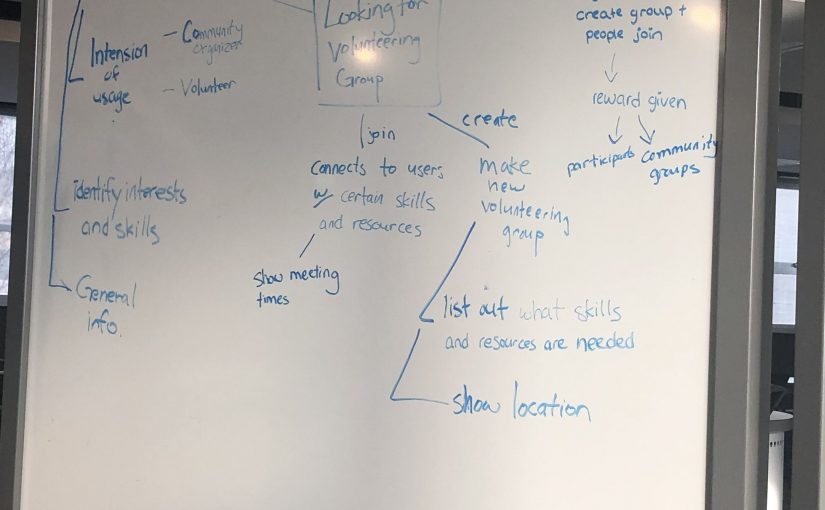 Intension
of
usage
- Community
organizer
- Volunteer
identify interests
and skills
General
info.
Looking for
Volunteering
Group
join
Connects to users
w/ certain skills
and resources
Show meeting
times
create
make
new
volunteering
group
list out what skills
and resources are needed
show location
create group +
people join
reward given
participants
community
groups